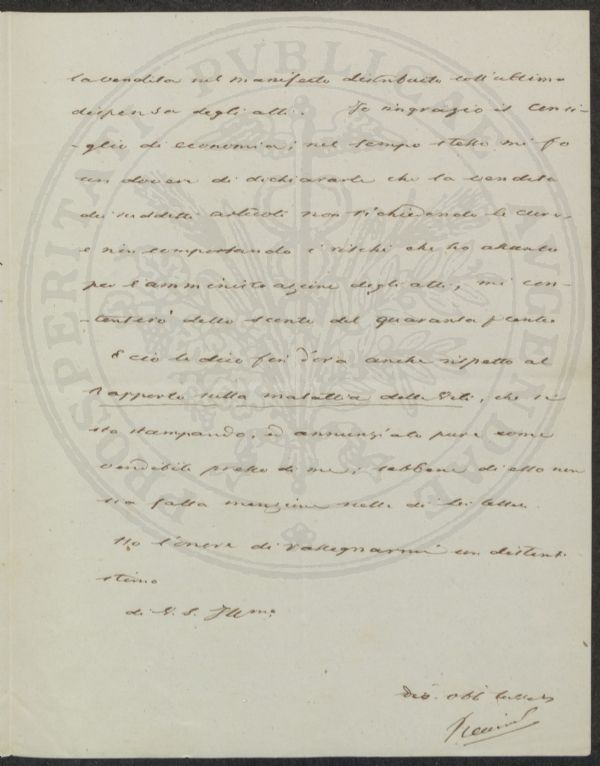 la vendita nel manifesto distribuito coll'ultima
dispensa degli atti. Io ringrazio il Consi-
-glio di economia; nel tempo stesso mi fo
un dovere di dichiararle che la vendita
dei suddetti articoli non richiedendo le cure,
e non comportando i rischi che ho avuto
per l'amministrazione degli atti, mi con-
-tenterò dello sconto del quaranta p cento
E ciò le dico fin d'ora anche rispetto al
Rapporto sulla malattia delle Viti, che si
sta stampando, ed annunziato pure come
vendibile presso di me; sebbene di esso non
sia fatta menzione nella di Lei lettera.
Ho l'onore di rassegnarmi con distint
stima
di V. S. Illma
PROSPERITATI PVBLICAE AVGENDAE